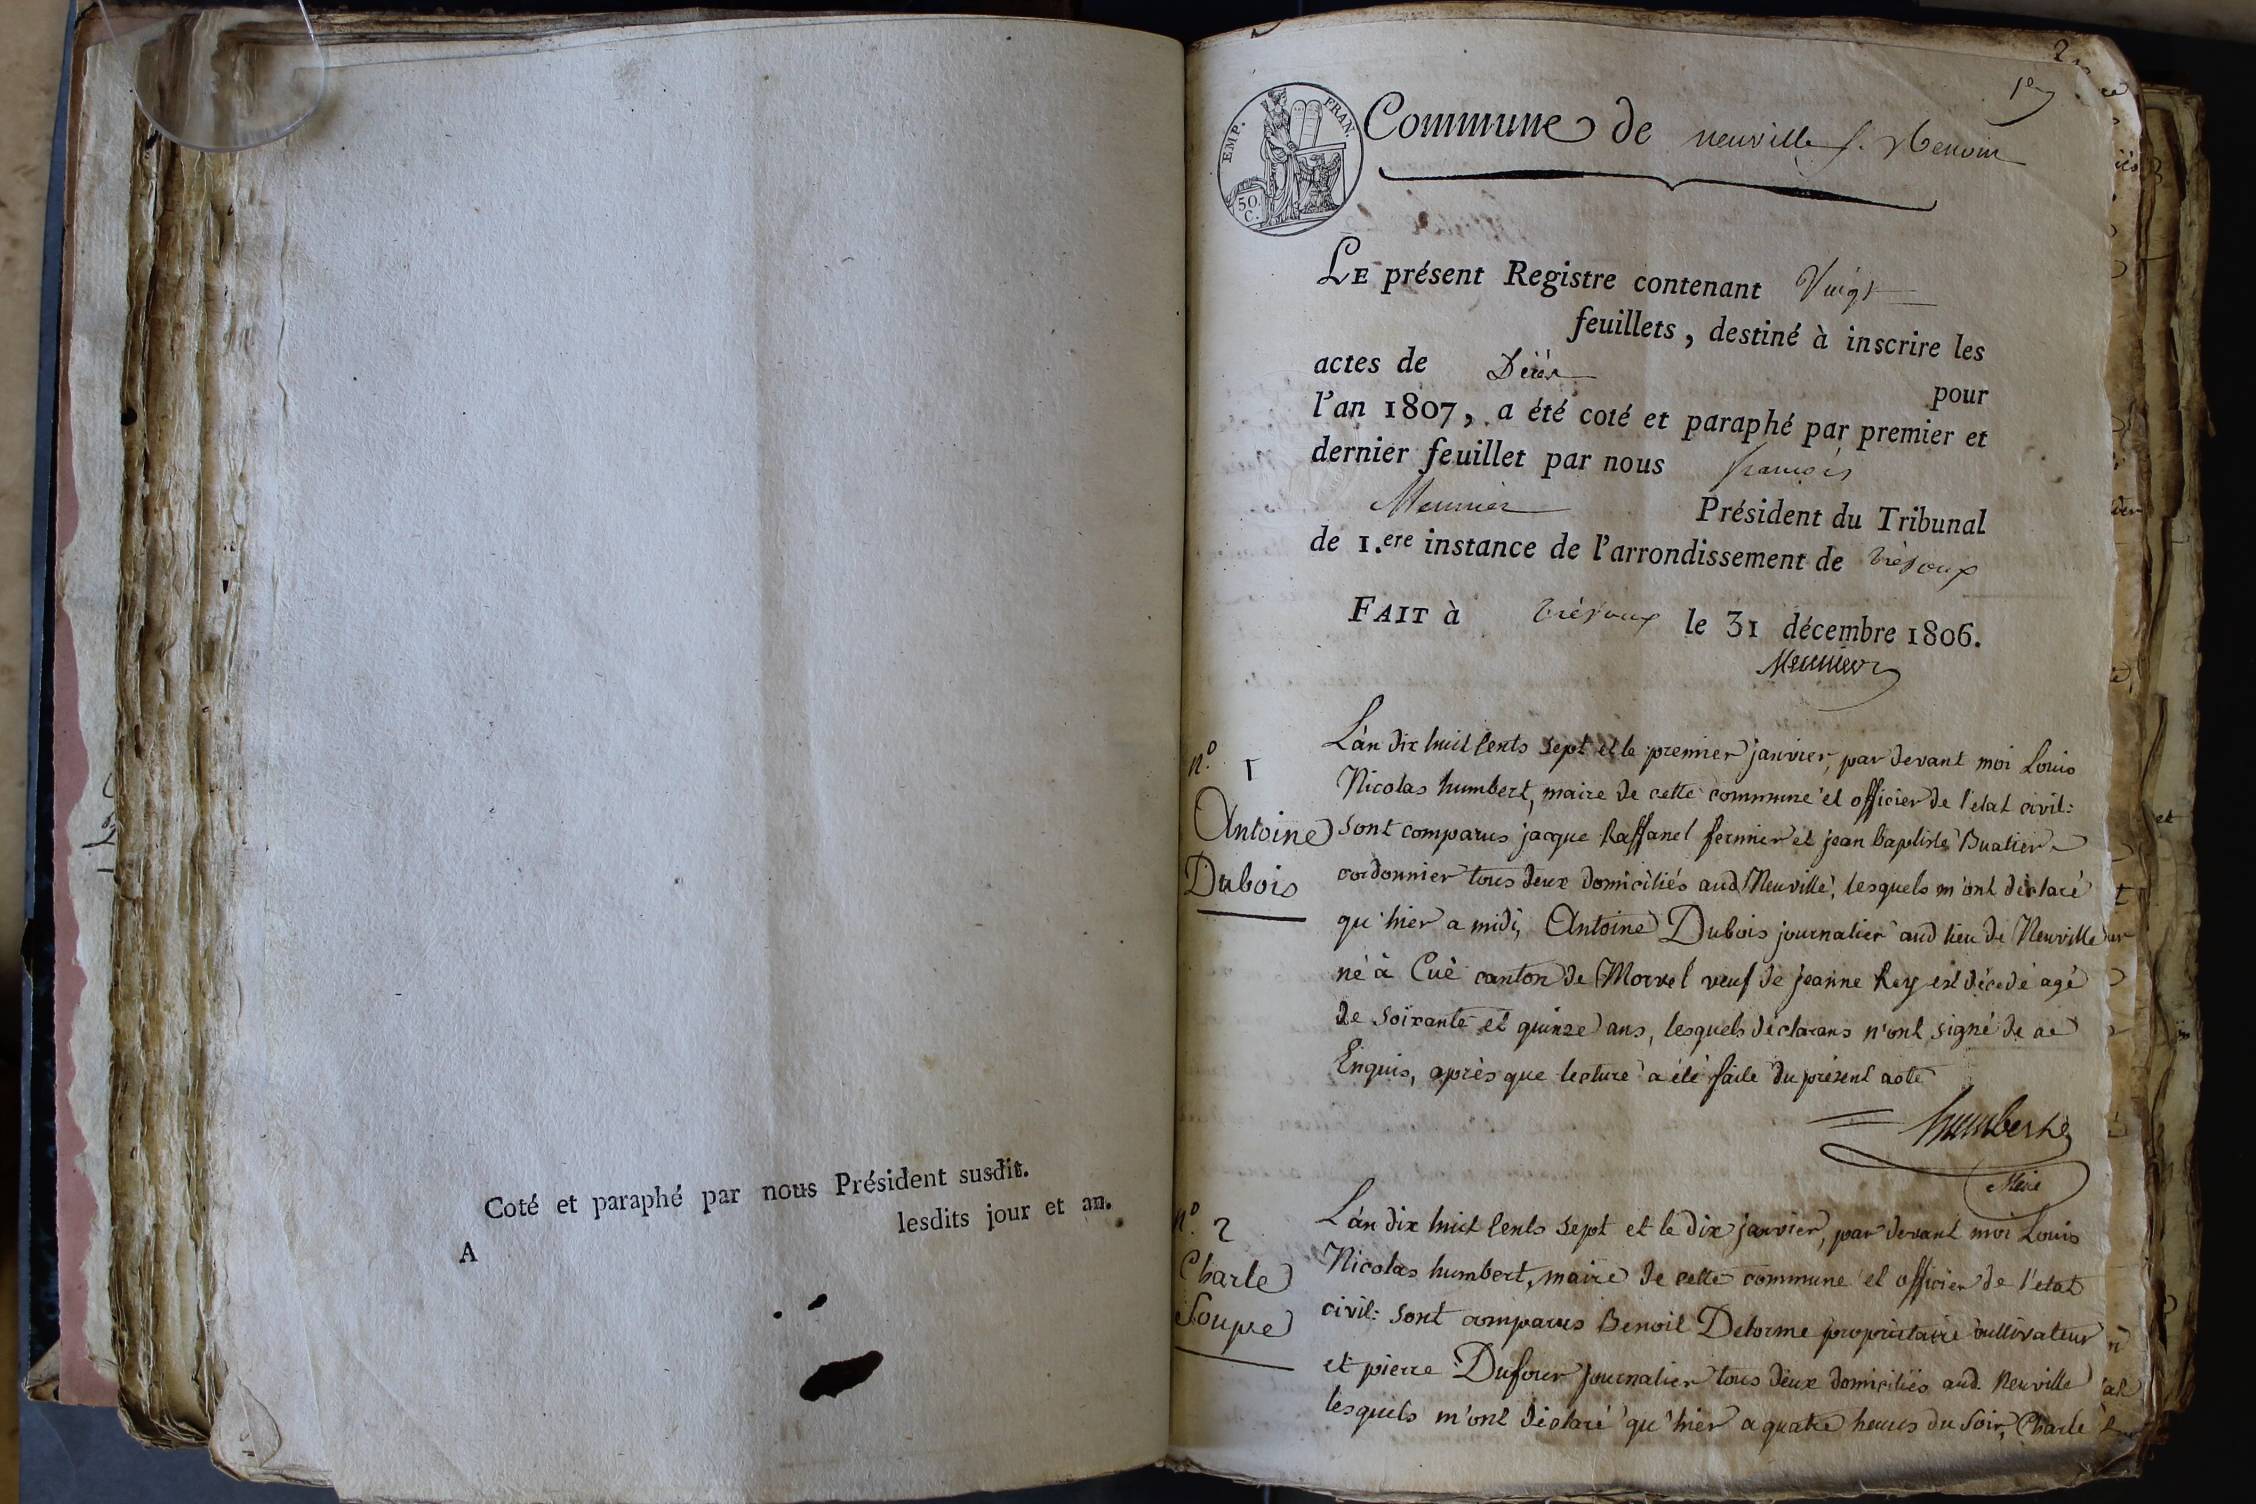 Coté et paraphé par nous Président susdit.
lesdits jour et an.
A
2
1er
EMP. FRAN.
50.
C.
Commune de neuville s. Renom
LE présent Registre contenant Vingt
feuillets, destiné à inscrire les
actes de Décès pour
l'an 1807, a été coté et paraphé par premier et
dernier feuillet par nous françois
Meunier Président du Tribunal
de 1.ere instance de l'arrondissement de trévoux
FAIT à trévoux le 31 décembre 1806.
Meunier
n.° 1
Antoine
Dubois
L'an dix huit Cents sept et le premier janvier, par devant moi Louis
Nicolas humbert, maire de cette commune et officier de l'etat civil:
sont comparus jacque Raffanel fermier et jean baptiste Buatier
cordonnier tous deux domiciliés aud Neuville, lesquels m'ont déclaré
qu'hier a midi, Antoine Dubois journalier aud lieu de Neuville
né à Cuè canton de Morvel veuf de jeanne Rey est décedé agé
de soixante et quinze ans, lesquels déclarans n'ont signé de ce
Enquis, après que lecture a été faite du présent acte
humbert
Mire
n.° 2
Charle
Soupe
L'an dix huit Cents sept et le dix janvier, par devant moi Louis
Nicolas humbert, maire de cette commune et officier de l'etat
civil: sont comparus Benoit Delorme propriétaire cultivateur
et pierre Dufour journalier tous deux domiciliés aud. Neuville
lesquels m'ont déclaré qu'hier a quatre heures du soir, Charle